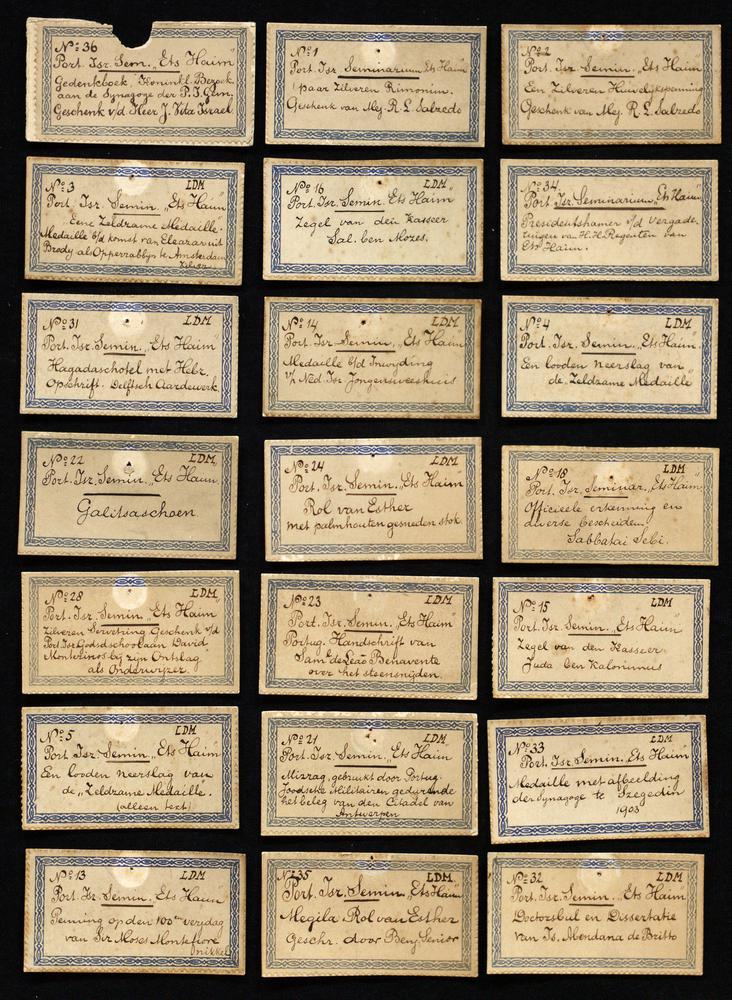 No 36
Port. Isr. Sem. „Ets Haim"
Gedenkboek Koninkl. Bezoek
aan de Synagoge der P. I. Gem.
Geschenk v/d Heer J. Vita Israel
No 1
Port. Isr. Seminarium Ets Haim
1 paar zilveren Rimonim.
Geschenk van Mej. R. L. Salzedo
No 2
Port. Isr. Semin. „Ets Haim"
Een Zilveren Huwelijkspenning
Geschenk van Mej. R. L. Salzedo
No 3 LDM
Port. Isr. Semin. „Ets Haim"
„Eene Zeldzame Medaille.
Medaille b/d komst van Eleazar uit
Brody als Opperrabbijn te Amsterdam
Zilver
No 16 LDM
Port. Isr. Semin. Ets Haim"
Zegel van den Kasseer
Sal. ben Mozes.
No 34.
Port. Isr. Seminarium „Ets Haim"
Presidentshamer v/d Vergade-
ringen van H.H. Regenten van
Ets Haim.
No 31 LDM
Port. Isr. Semin. „Ets Haim"
Hagadaschotel met Hebr.
Opschrift. Delftsch Aardewerk.
No 14 LDM
Port. Isr. Semin. „Ets Haim
Medaille b/d Inwijding
v/h Ned. Isr. Jongensweeshuis
No 4 LDM
Port. Isr. Semin. „Ets Haim.
Een looden neerslag van
de „Zeldzame Medaille"
No 22 LDM
Port. Isr. Semin. „Ets Haim
Galitsaschoen
No 24 LDM
Port. Isr. Semin. „Ets Haim
Rol van Esther
met palmhouten gesneden stok.
No 18 LDM
Port. Isr. Seminar. „Ets Haim"
Officieele erkenning en
diverse bescheiden
Sabbatai Sebi.
No 28 LDM
Port. Isr. Semin „Ets Haim
Zilveren Servetring Geschenk v/d
Port. Isr. Godsd. school aan David
Montezinos bij zijn Ontslag
als Onderwijzer.
No 23 LDM
Port. Isr. Semin. „Ets Haim"
Portug. Handschrift van
Sam. de Leao Benavente
over het steensnijden.
No 15 LDM
Port. Isr. Semin. „Ets Haim"
Zegel van den Kasseer
Juda ben Kalonimus
No 5 LDM
Port. Isr. Semin „Ets Haim"
Een looden neerslag van
de „Zeldzame Medaille.
(alleen text)
No 21 LDM
Port. Isr. Semin. „Ets Haim
Mizrag, gebruikt door Portug.
Joodsche Militairen gedurende
het beleg van den Citadel van
Antwerpen
No 33 LDM
Port. Isr. Semin. Ets Haim"
Medaille met afbeelding
der Synagoge te Szegedin
1903
No 13 LDM
Port. Isr. Semin. „Ets Haim
Penning op den 100sten verjdag
van Sir Moses Montefiore
nikkel
No 35 LDM
Port. Isr. Semin „Ets Haim
Megila. Rol van Esther
Geschr. door Benj. Senior
No 32 LDM
Port. Isr. Semin. „Ets Haim
Doctorsbul en Dissertatie
van Is. Mendana de Britto